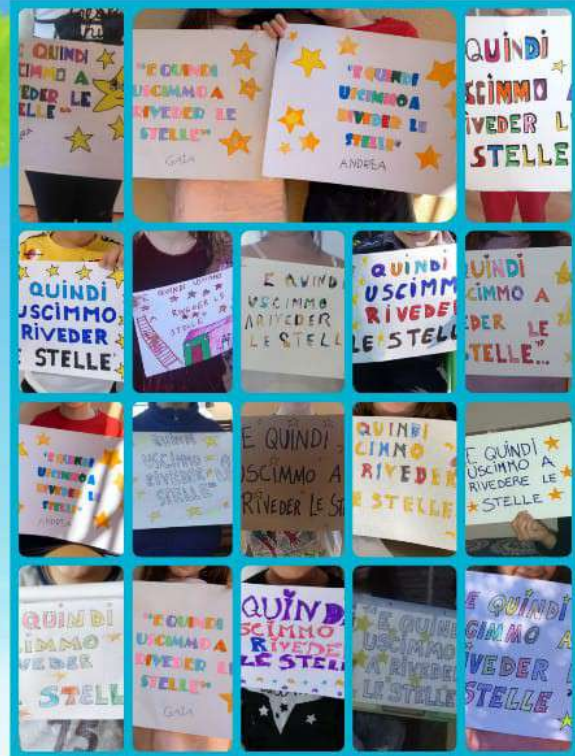 E QUINDI
CIMMO A
VEDER LE
ELLE"
"E QUINDI
USCIMMO A
RIVEDER LE
STELLE"
GAIA
"E QUINDI
USCIMMO A
RIVEDER LE
STELLE"
ANDREA
QUINDI
SCIMMO A
IVEDER L
STELLE
QUINDI
USCIMMO
RIVEDER
E STELLE"
E QUINDI USCIMMO
A RIVEDER LE
STELLE
E QUIND
USCIMMO
A RIVEDER
LE STELL
QUINDI
USCIMM
RIVEDE
LE STELL
QUINDI
CIMMO A
EDER LE
TELLE...
"E QUINDI
USCIMMO A
RIVEDER L
STELLE"
ANDREA
QUINDI
USCIMMO A
RIVEDER
STELLE
E QUINDI
USCIMMO A
RIVEDER LE ST
QUINDI
CIMMO
RIVEDER
E STELLE
E QUINDI
USCIMMO A
RIVEDERE LE
STELLE
QUINDI
IMMO
VEDER
STELL
"E QUINDI
USCIMMO A
RIVEDER LE
STELLE"
GAIA
QUIND
SCIMMO
RIVEDE
LE STEL
"E QUIND
USCIMMO
A RIVEDER
LE STELLE"
E QUINDI
CIMMO A
IVEDER
STELLE"